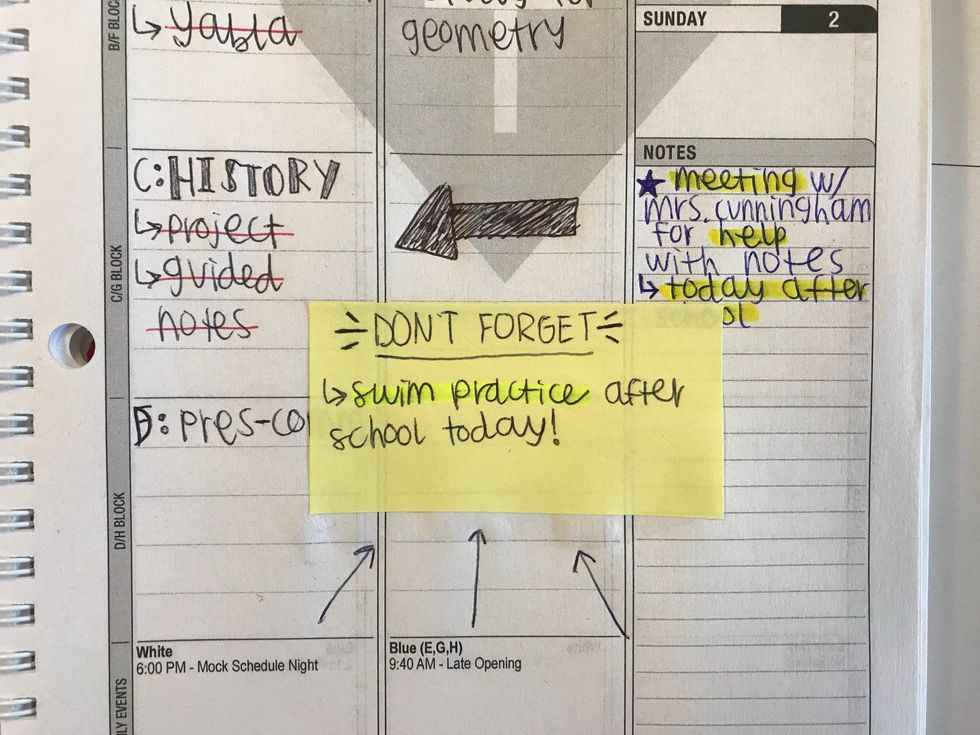 B/F BLOC
↳ yabla
geometry
SUNDAY 2
C/G BLOCK
C: HISTORY
↳ project
↳ guided
notes
NOTES
★ meeting w/
mrs. cunningham
for help
with notes
↳ today after
ol
DON'T FORGET
↳ swim practice after
school today!
D/H BLOCK
D: pres-co
LY EVENTS
White
6:00 PM - Mock Schedule Night
Blue (E,G,H)
9:40 AM - Late Opening